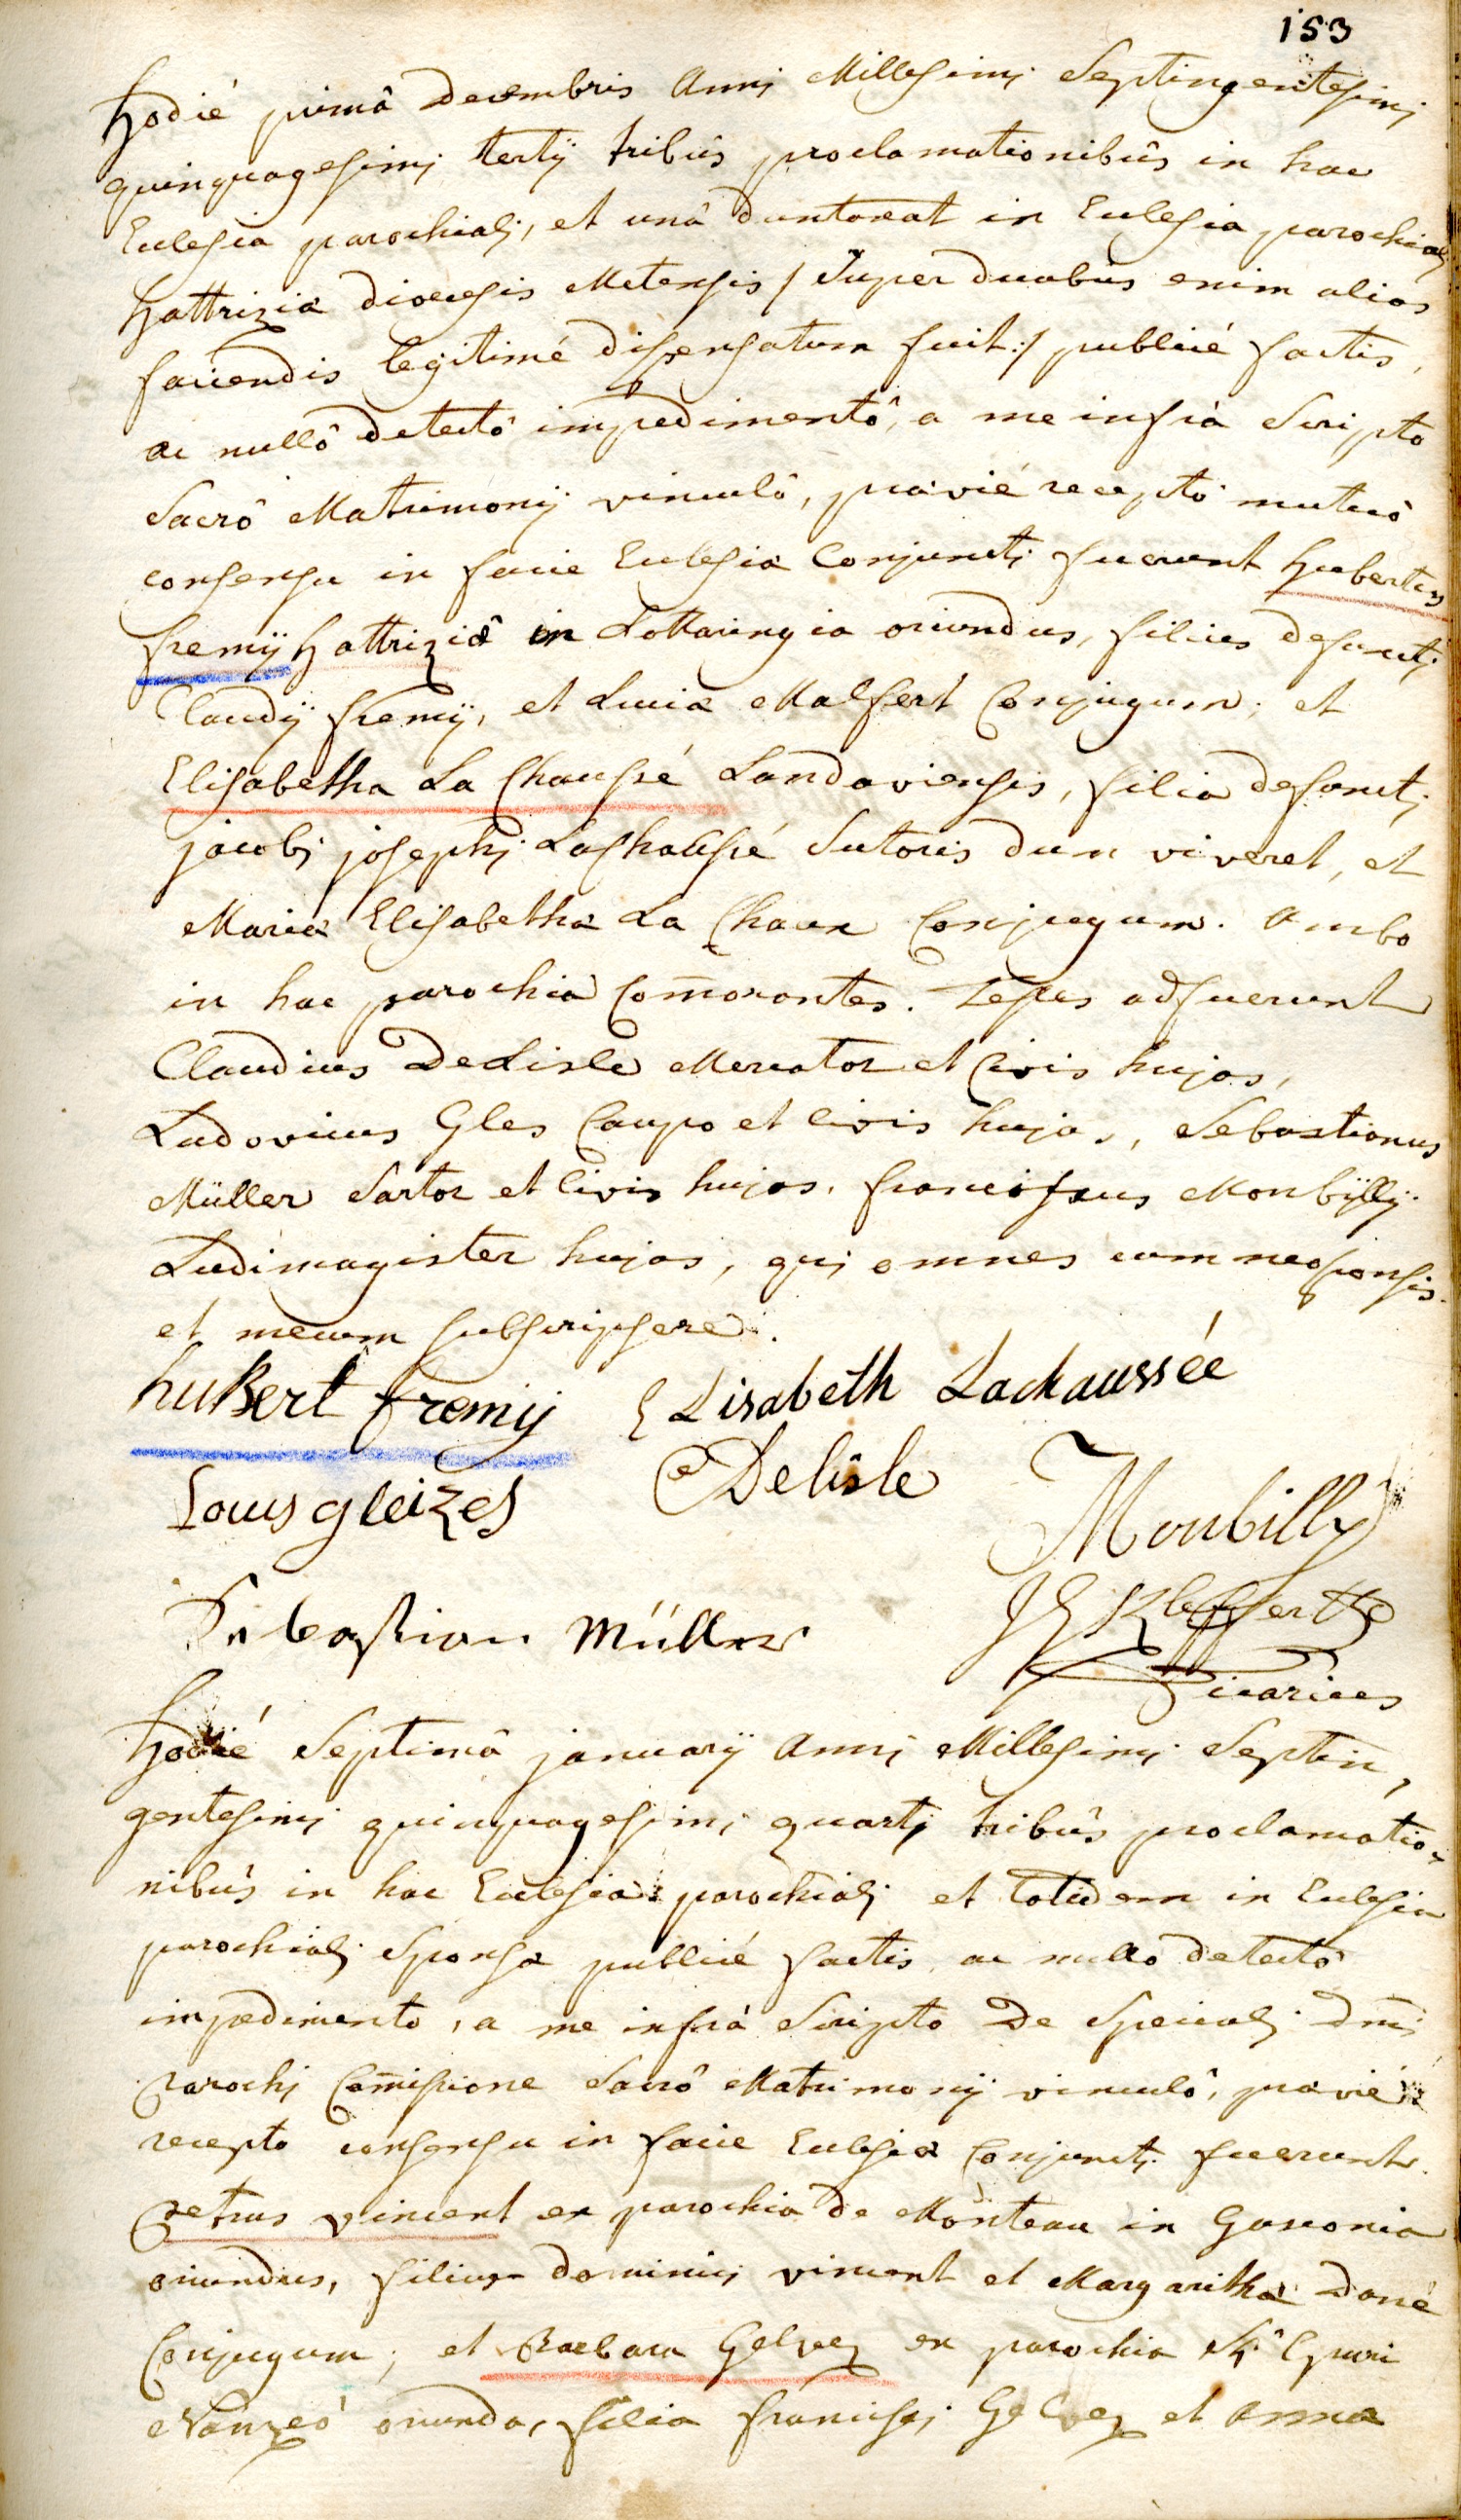 153
Hodié primâ decembris Annj Millesimj Septingentesimj
quinquagesimj tertÿ tribûs proclamationibûs in hac
Eclesia parochialj, et unâ duntaxat in Eclesia parochialj
hattriziæ dioecesis Metensis / Super duabus enim alias
faciendis legitimé dispensatum fuit :/ publicé factis,
ac nullô detectô impedimentô, a me infrà Scripto
Sacrô Matrimonÿ vinculô, præviè receptô mutuô
consensu in facie Eclesiæ Conjunctj fuerunt hubertus
fremÿ hattriziâ in Lottaringia oriundus, filius defunctj
Claudÿ fremÿ, et Luciæ Malfert Conjugum; et
Elisabetha La Chaussé Landaviensis, filia defunctj
jacobj josephj LaChaussé Sutoris dum viveret, et
Mariæ Elisabethæ La Chaux Conjugum. Ambo
in hac parochia Com̄orantes. Testes adfuerunt
Claudius DeLisle Mercator et Civis hujas,
Ludovicus Gles Caupo et Civis hujas, Sebastianus
Müller Sartor et Civis hujas. franciscus Monbÿllÿ
Ludimagister hujas, quj omnes cum neosponsis
et mecum subscripsere.
huBert fremij ELisabeth Lachaussée
Delisle
Louis gleizes
Monbilly
Sebastian Müller
Vicarius
Hodié Septimâ januarÿ Annj Millesimj Septin,
gentesimj quinquagesimj quartj tribûs proclamatio,
nibûs in hac Eclesia parochialj et totidem in Eclesia
parochialj Sponsæ publicé factis, ac nullô detectô
impedimento, a me infrà Scripto De Specialj Dn̄j
Parochj Com̄issione Sacrô Matrimonÿ vinculô, præviè
recepto consensu in facie Eclesiæ Conjunctj fuerunt
Petrus vincent ex parochia de Monteau in Gasconia
oriundus, filius dominicj vincent et Margarithæ Doné
Conjugum; et Barbara Gelvez ex parochia Stj Epuri
Nanzeô oriunda, filia franciscj Gelvez et Annæ